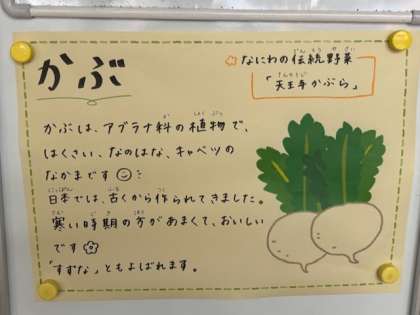 かぶ
なにわの伝統野菜
「天王寺かぶら」
かぶは、アブラナ科の植物で、
はくさい、なのはな、キャベツの
なかまです
日本では、古くから作られてきました。
寒い時期の方があまくて、おいしい
です
「すずな」ともよばれます。